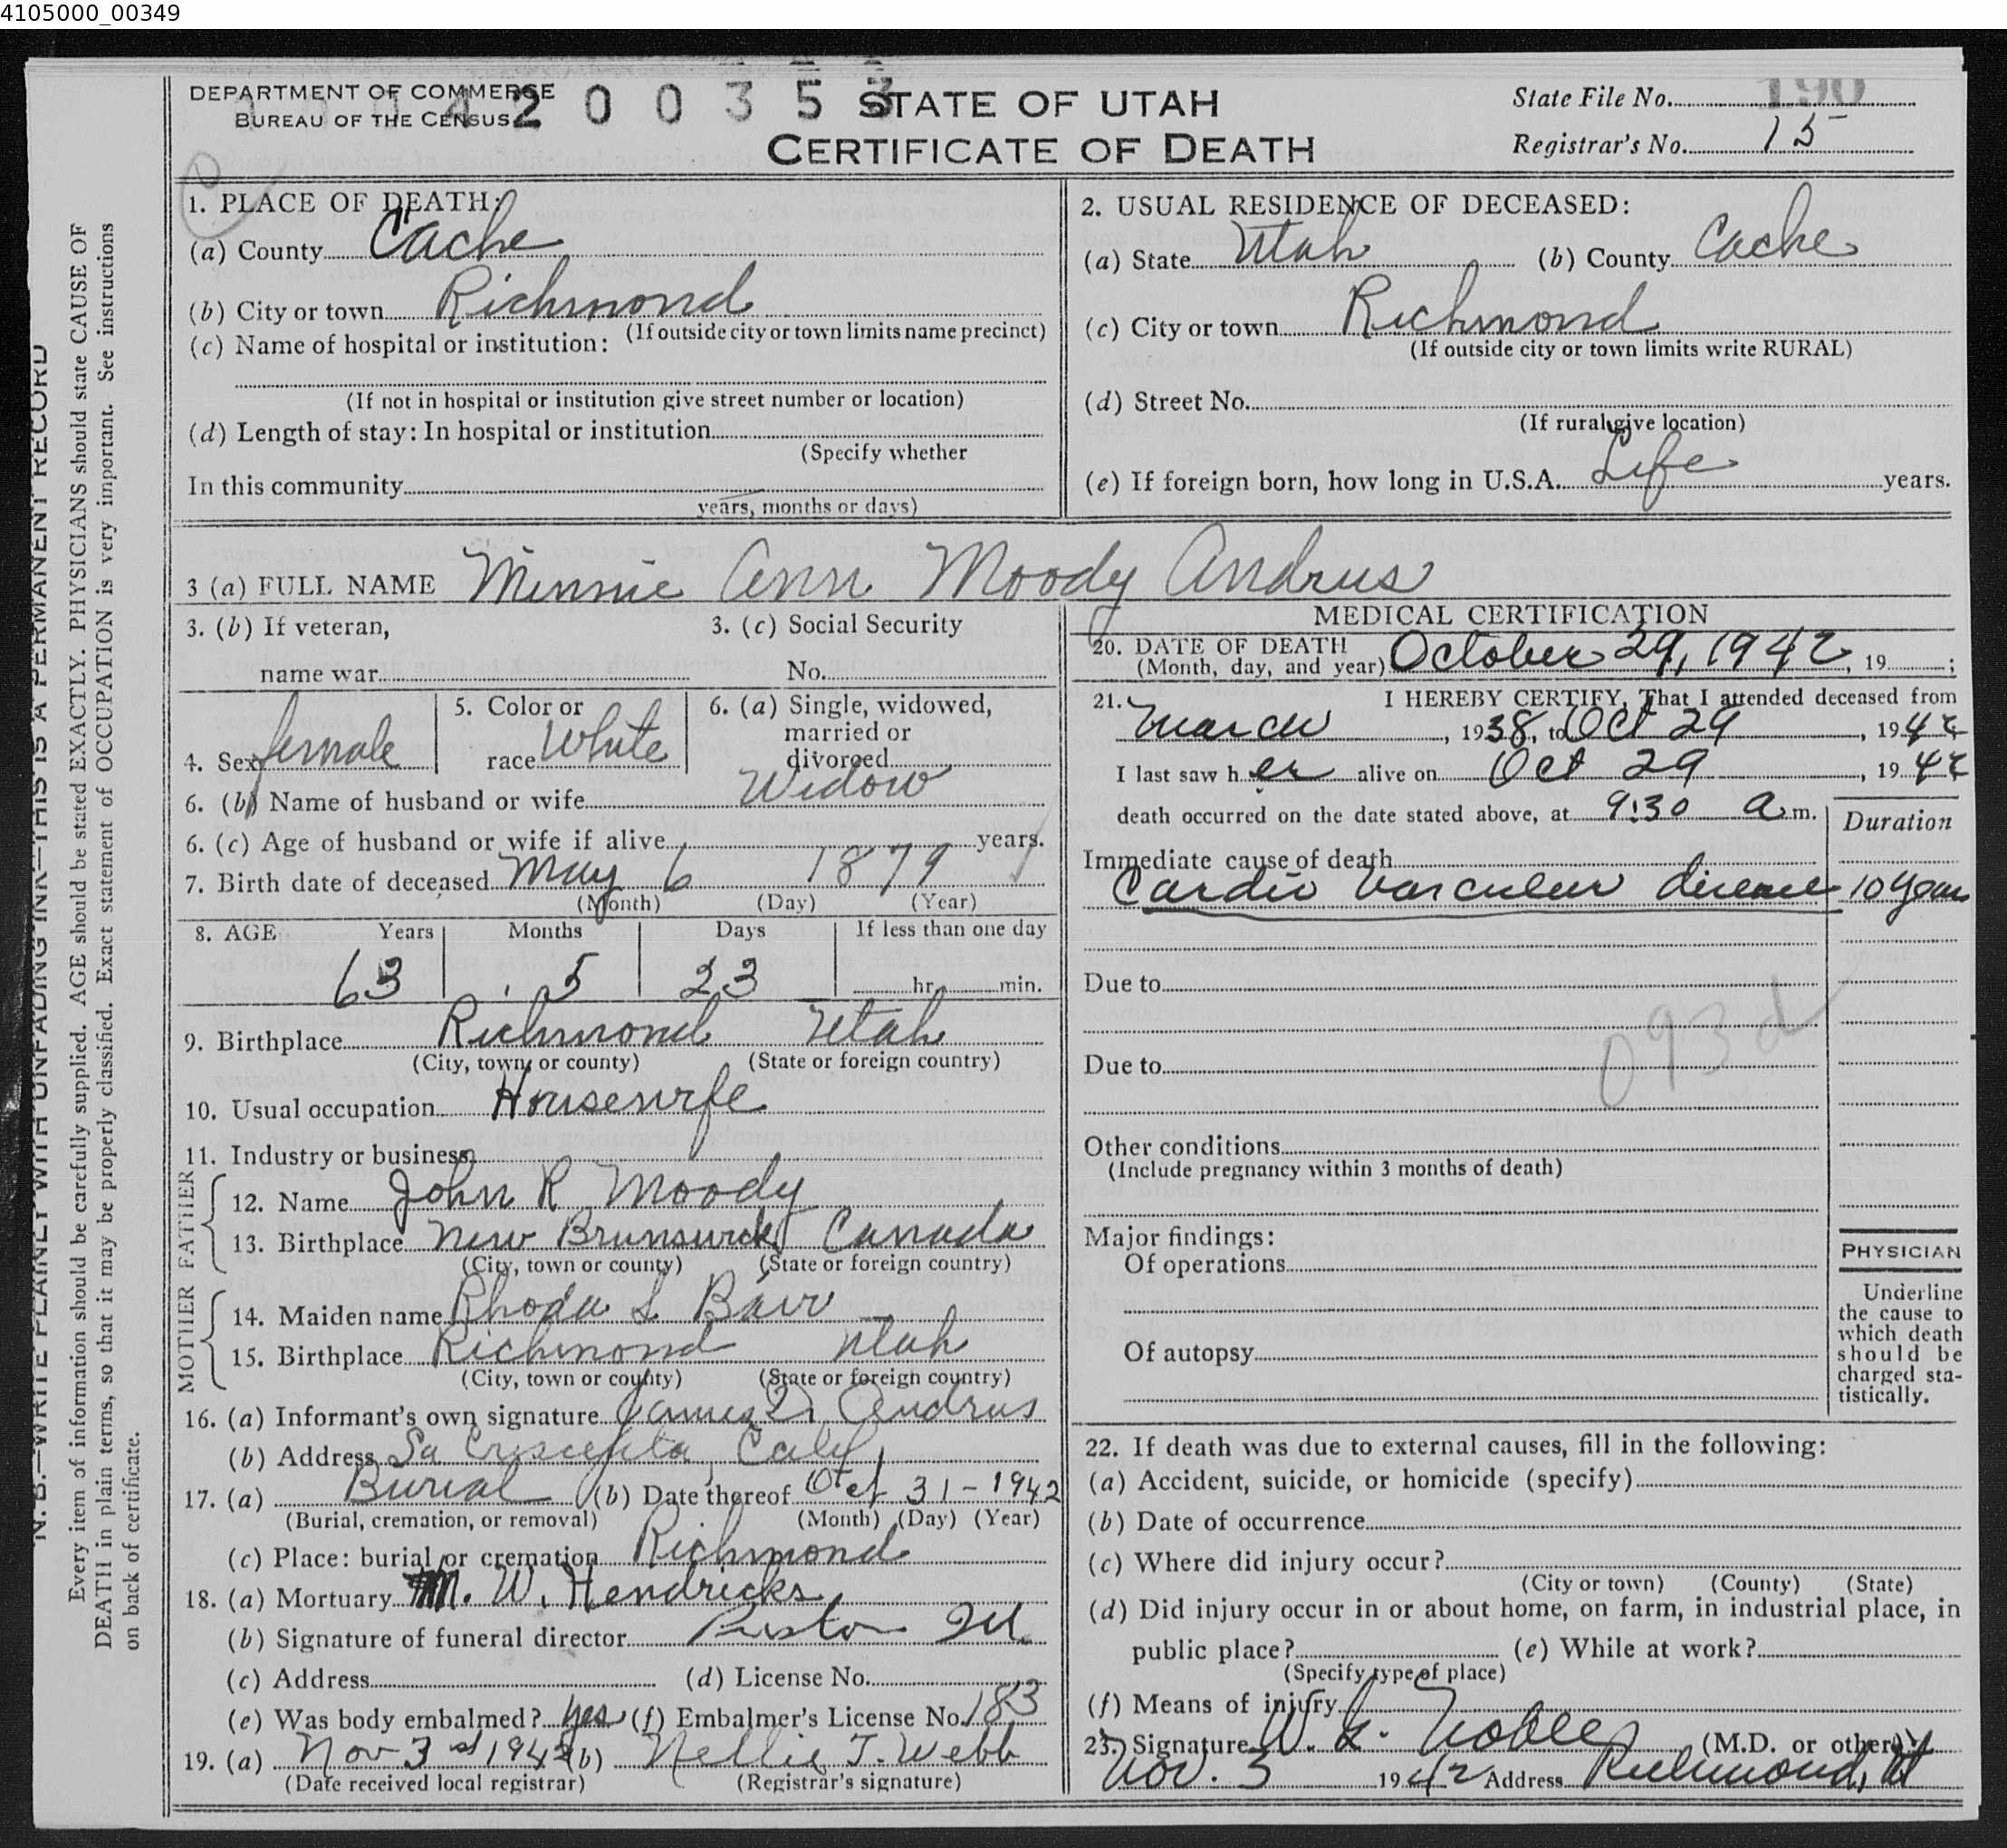 4105000_00349
DEPARTMENT OF COMMERSE
BUREAU OF THE CENSUS
4 2 0 0 3 5 3
STATE OF UTAH
CERTIFICATE OF DEATH
State File No. 190
Registrar's No. 15
N. B.—WRITE PLAINLY WITH UNFADING INK—THIS IS A PERMANENT RECORD
Every item of information should be carefully supplied. AGE should be stated EXACTLY. PHYSICIANS should state CAUSE OF
DEATH in plain terms, so that it may be properly classified. Exact statement of OCCUPATION is very important. See instructions
on back of certificate.
1. PLACE OF DEATH:
(a) County Cache
(b) City or town Richmond
(If outside city or town limits name precinct)
(c) Name of hospital or institution:
(If not in hospital or institution give street number or location)
(d) Length of stay: In hospital or institution
(Specify whether
In this community
years, months or days)
2. USUAL RESIDENCE OF DECEASED:
(a) State Utah (b) County Cache
(c) City or town Richmond
(If outside city or town limits write RURAL)
(d) Street No.
(If rural give location)
(e) If foreign born, how long in U.S.A. Life years.
3 (a) FULL NAME Minnie Ann Moody Andrus
3. (b) If veteran,
name war
3. (c) Social Security
No.
4. Sex female
5. Color or
race White
6. (a) Single, widowed,
married or
divorced
Widow
6. (b) Name of husband or wife
6. (c) Age of husband or wife if alive years.
7. Birth date of deceased May 6 1879
(Month) (Day) (Year)
8. AGE Years Months Days If less than one day
63 5 23 hr. min.
9. Birthplace Richmond Utah
(City, town, or county) (State or foreign country)
10. Usual occupation Housewife
11. Industry or business
FATHER
12. Name John R Moody
13. Birthplace New Brunswick Canada
(City, town or county) (State or foreign country)
MOTHER
14. Maiden name Rhoda L Bair
15. Birthplace Richmond Utah
(City, town or county) (State or foreign country)
16. (a) Informant's own signature James D. Andrus
(b) Address La Crescenta, Calif
17. (a) Burial (b) Date thereof Oct 31-1942
(Burial, cremation, or removal) (Month) (Day) (Year)
(c) Place: burial or cremation Richmond
18. (a) Mortuary M. W. Hendricks
(b) Signature of funeral director Preston Id.
(c) Address (d) License No.
(e) Was body embalmed? Yes (f) Embalmer's License No. 183
19. (a) Nov 3rd 1942 (b) Nellie T. Webb
(Date received local registrar) (Registrar's signature)
MEDICAL CERTIFICATION
20. DATE OF DEATH
(Month, day, and year) October 29, 1942, 19 ;
21. I HEREBY CERTIFY, That I attended deceased from
March, 1938, to Oct 29, 1942
I last saw her alive on Oct 29, 1942
death occurred on the date stated above, at 9:30 a m.
Duration
Immediate cause of death
Cardio vascular disease 10 years
Due to
093d
Due to
Other conditions
(Include pregnancy within 3 months of death)
Major findings:
Of operations
Of autopsy
PHYSICIAN
Underline
the cause to
which death
should be
charged sta-
tistically.
22. If death was due to external causes, fill in the following:
(a) Accident, suicide, or homicide (specify)
(b) Date of occurrence
(c) Where did injury occur?
(City or town) (County) (State)
(d) Did injury occur in or about home, on farm, in industrial place, in
public place? (e) While at work?
(Specify type of place)
(f) Means of injury
23. Signature W. L. Noble (M.D. or other)
Nov. 3 1942 Address Richmond, Ut